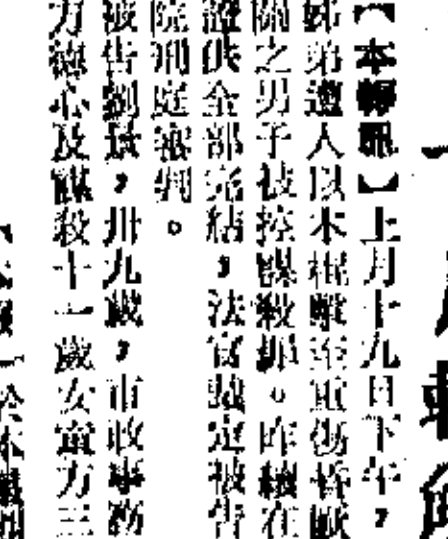 【本報訊】上月十九日下午，
姊弟遭人以木棍擊至重傷昏厥
關之男子被控謀殺罪。昨續在
證供全部完結，法官定被告
院刑庭審判。
被告劉，卅九歲，市政事務
方德心及謀殺十一歲女童方三